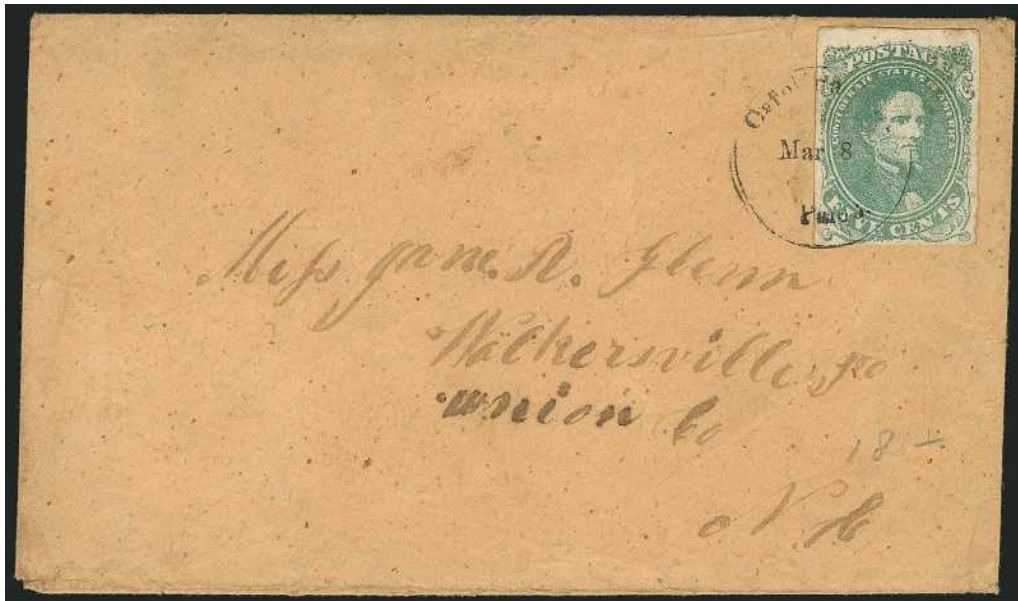 POSTAGE
CONFEDERATE STATES OF AMERICA
FIVE CENTS
Mar 8
Paid 5
Miss Jane. A. Glenn
Walkersville, Po
union Co
N. C
18